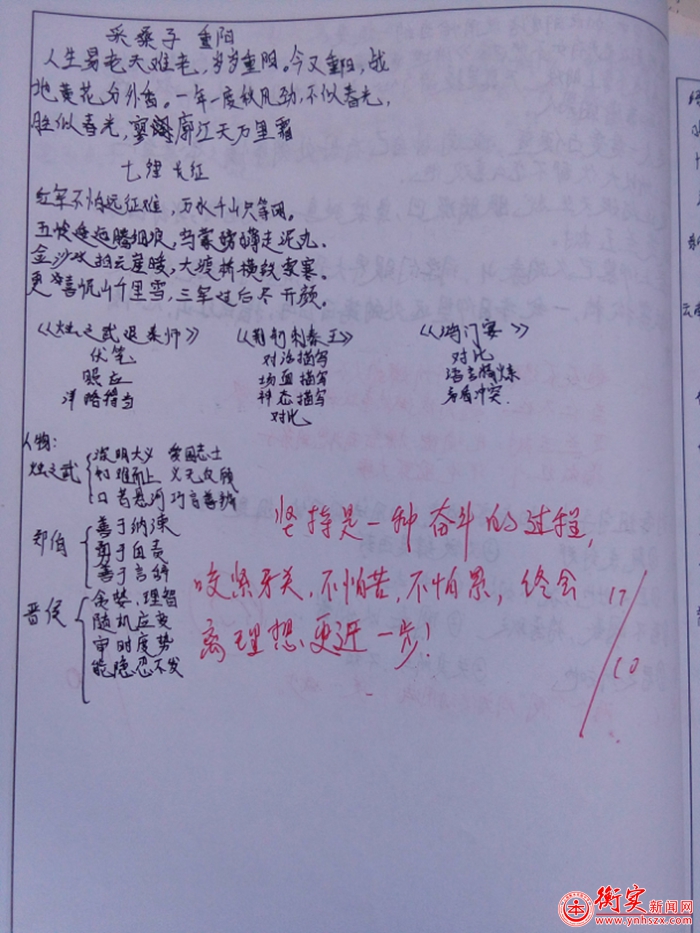 采桑子 重阳
人生易老天难老,岁岁重阳。今又重阳,战
地黄花分外香。一年一度秋风劲,不似春光,
胜似春光,寥廓江天万里霜
七律 长征
红军不怕远征难,万水千山只等闲。
五岭逶迤腾细浪,乌蒙磅礴走泥丸。
金沙水拍云崖暖,大渡桥横铁索寒。
更喜岷山千里雪,三军过后尽开颜。
《烛之武退秦师》 《荆轲刺秦王》 《鸿门宴》
伏笔 对话描写 对比
照应 场面描写 语言精炼
详略得当 神态描写 矛盾冲突
对比
人物:
烛之武 深明大义 爱国志士
知难而上 义无反顾
口若悬河 巧言善辩
郑伯 善于纳谏
勇于自责
善于言辞
晋侯 贪婪、理智
随机应变
审时度势
能隐忍不发
坚持是一种奋斗的过程,
咬紧牙关,不怕苦,不怕累,终会
离理想更近一步!
17/10
衡实新闻网
www.ynhszx.com